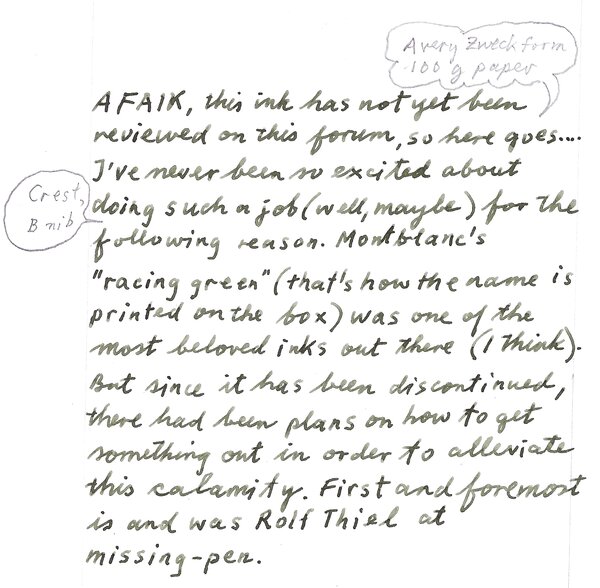 Avery Zweckform
100 g paper
AFAIK, this ink has not yet been
reviewed on this forum, so here goes....
I've never been so excited about
Crest,
B nib
doing such a job (well, maybe) for the
following reason. Montblanc's
"racing green" (that's how the name is
printed on the box) was one of the
most beloved inks out there (I think).
But since it has been discontinued,
there had been plans on how to get
something out in order to alleviate
this calamity. First and foremost
is and was Rolf Thiel at
missing-pen.